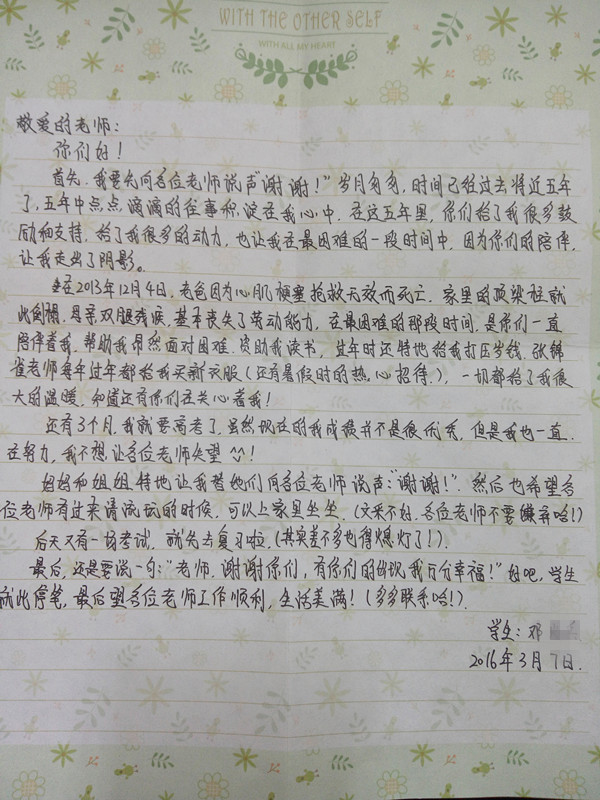 WITH THE OTHER SELF
WITH ALL MY HEART
敬爱的老师：
你们好！
首先，我要先向各位老师说声“谢谢！”岁月匆匆，时间已经过去将近五年
了，五年中点点滴滴的往事积淀在我心中。在这五年里，你们给了我很多鼓
励和支持，给了我很多的动力，也让我在最困难的一段时间中，因为你们的陪伴，
让我走出了阴影。
在2013年12月4日，老爸因为心肌梗塞抢救无效而死亡，家里的顶梁柱就
此倒塌，母亲双腿残疾，基本丧失了劳动能力，在最困难的那段时间，是你们一直
陪伴着我，帮助我昂然面对困难，资助我读书，过年时还特地给我打压岁钱，张锦
雀老师每年过年都给我买新衣服（还有暑假时的热心招待），一切都给了我很
大的温暖，知道还有你们在关心着我！
还有3个月，我就要高考了，虽然现在的我成绩并不是很优秀，但是我也一直
在努力，我不想让各位老师失望^^！
妈妈和姐姐特地让我替她们向各位老师说声：“谢谢！”，然后也希望各
位老师有过来清流玩的时候，可以上家里坐坐，（文采不好，各位老师不要嫌弃哈！）
后天又有一场考试，就先去复习啦（其实差不多也得熄灯了！）。
最后，还是要说一句：“老师，谢谢你们，有你们的出现我万分幸福！”好吧，学生
就此停笔，最后望各位老师工作顺利，生活美满！（多多联系哈！）。
学生：邓
2016年3月7日.